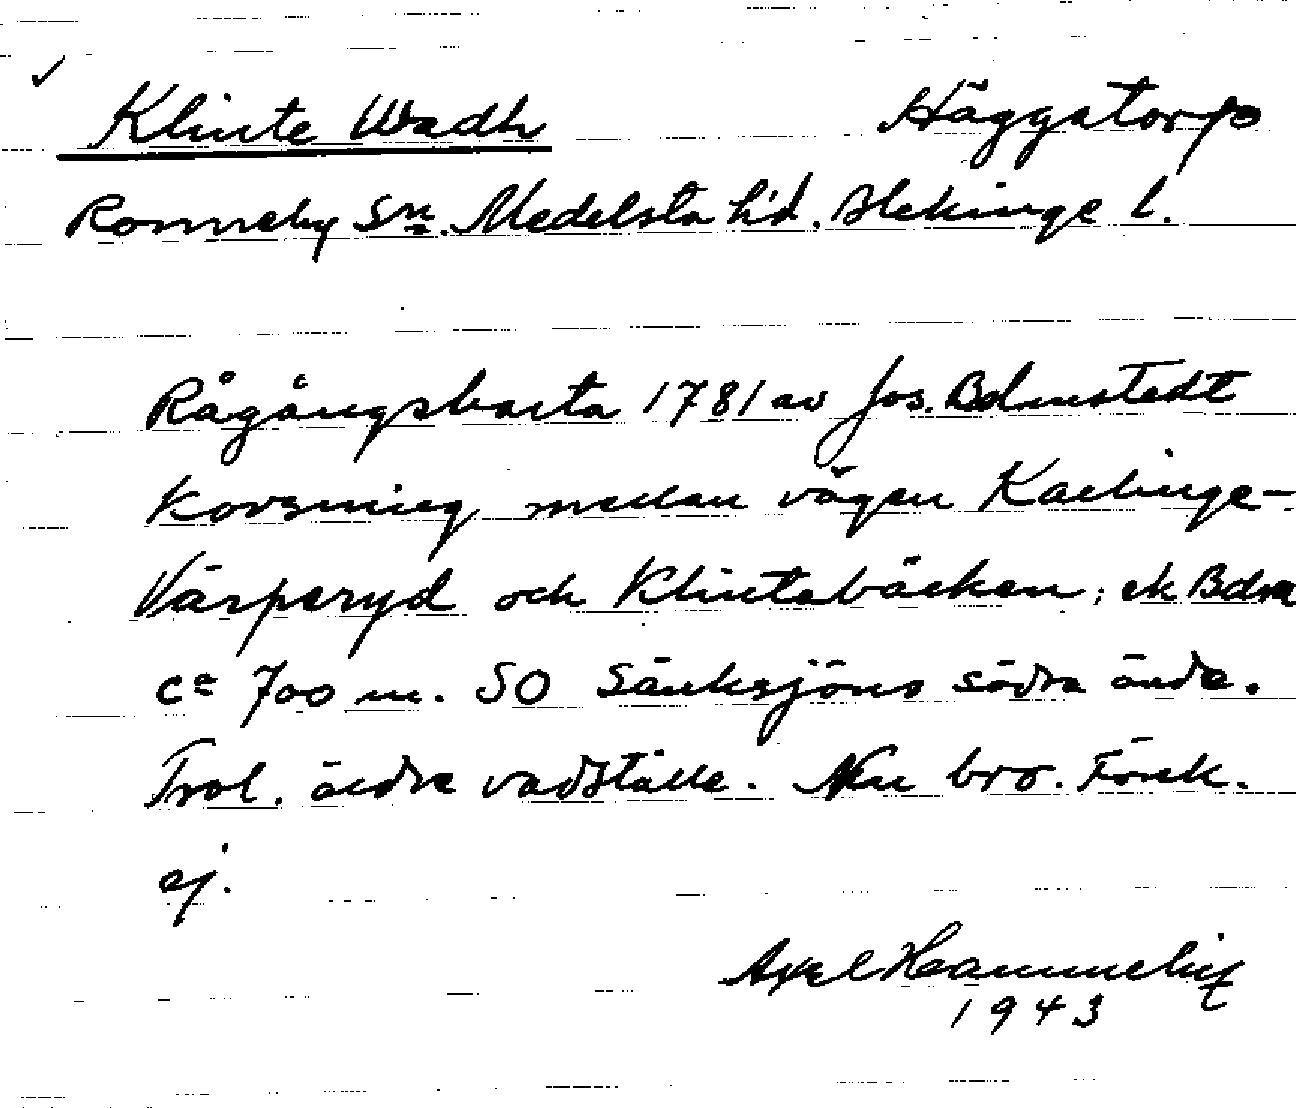 ✓ Klinte Wadh Häggatorp
Ronneby Sn. Medelsta hd. Blekinge l.
Rågångskarta 1781 av Jos. Bolmstedt
Korsning mellan vägen Kallinge-
Värperyd och Klintabäcken; ek Bdm
ca 700 m. SO Sänksjöns södra ände.
Trol. äldre vadställe. Nu bro. Förek.
ej.
Axel Hammelin
1943